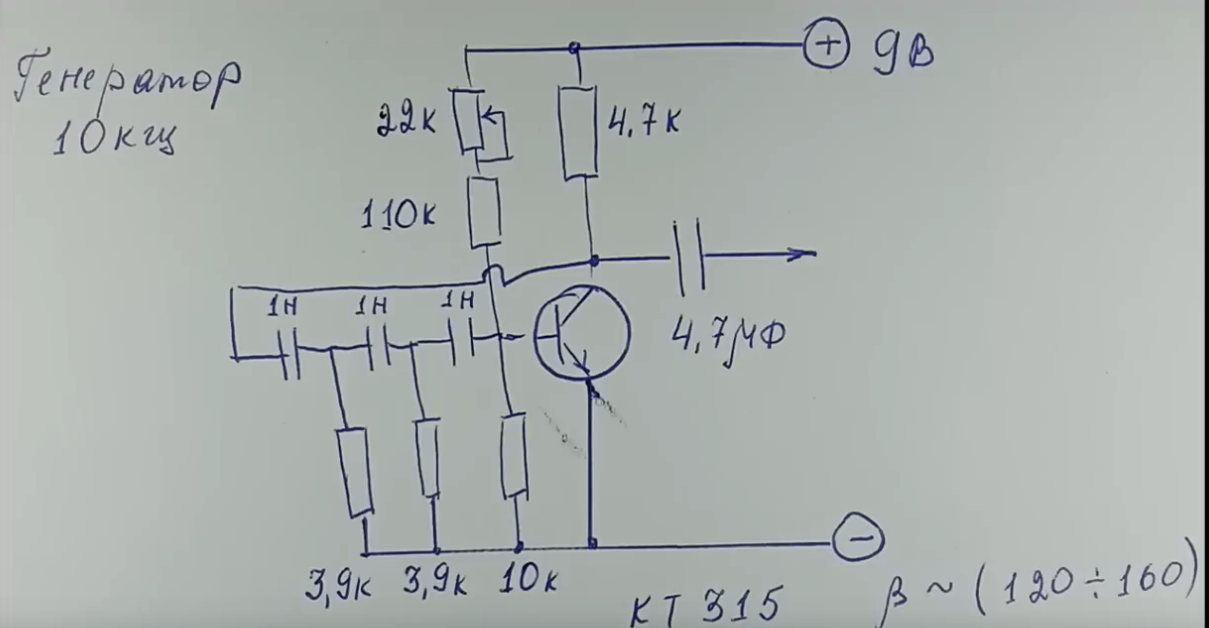 Генератор
10 кгц
+ 9В
22к
4,7к
110к
1н 1н 1н
4,7мФ
3,9к 3,9к 10к
КТ 315
β ~ (120÷160)
−